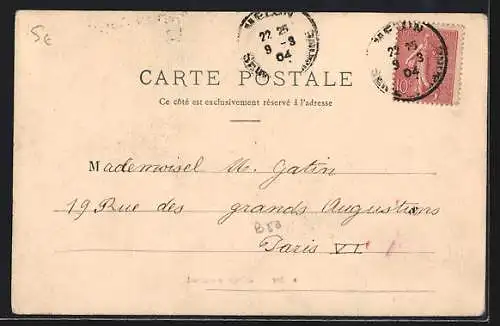 5€
MELUN
22 25
9 - 3
04
MELUN
22 25
9 3
04
10
CARTE POSTALE
Ce côté est exclusivement réservé à l'adresse
Mademoisel M. Gatin
19 Rue des grands Augustins
Paris VI